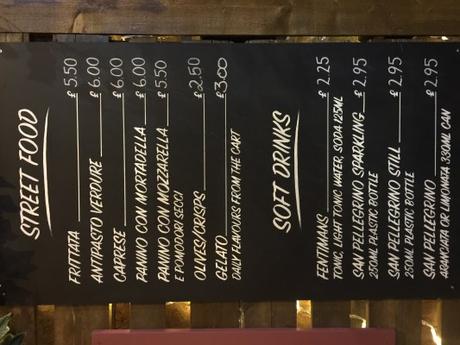 STREET FOOD
FRITTATA £ 5.50
ANTIPASTO VERDURE £ 6.00
CAPRESE £ 6.00
PANINO CON MORTADELLA £ 6.00
PANINO CON MOZZARELLA £ 5.50
E POMODORI SECCI
OLIVES/CRISPS £ 2.50
GELATO £3.00
DAILY FLAVOURS FROM THE CART
SOFT DRINKS
FENTIMANS £ 2.25
TONIC, LIGHT TONIC WATER, SODA 125ML
SAN PELLEGRINO SPARKLING £ 2.95
250ML PLASTIC BOTTLE
SAN PELLEGRINO STILL £ 2.95
250ML PLASTIC BOTTLE
SAN PELLEGRINO £ 2.95
ARANCIATA OR LIMONATA 330ML CAN